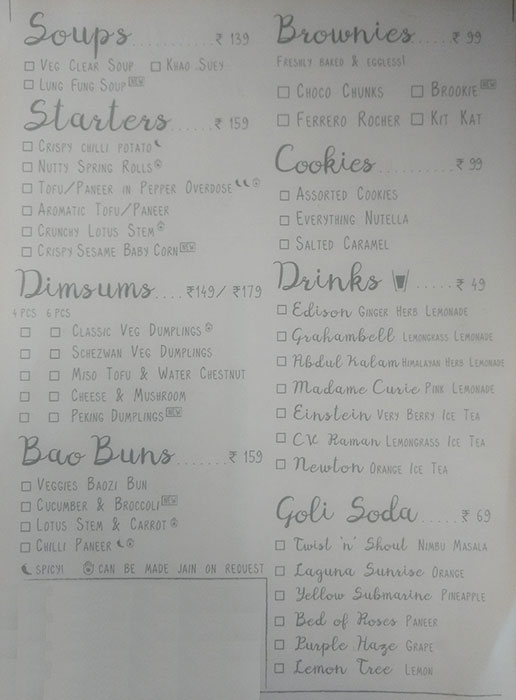 Soups.......... ₹ 139
Veg Clear Soup Khao Suey
Lung Fung Soup NEW
Starters....... ₹ 159
Crispy chilli potato
Nutty Spring Rolls
Tofu/Paneer in Pepper Overdose
Aromatic Tofu/Paneer
Crunchy Lotus Stem
Crispy Sesame Baby Corn NEW
Dimsums.... ₹149/ ₹179
4 PCS 6 PCS
Classic Veg Dumplings
Schezwan Veg Dumplings
Miso Tofu & Water Chestnut
Cheese & Mushroom
Peking Dumplings NEW
Bao Buns....... ₹ 159
Veggies Baozi Bun
Cucumber & Broccoli NEW
Lotus Stem & Carrot
Chilli Paneer
SPICY! CAN BE MADE JAIN ON REQUEST
Brownies....... ₹ 99
Freshly baked & eggless!
Choco Chunks Brookie NEW
Ferrero Rocher Kit Kat
Cookies.......... ₹ 99
Assorted Cookies
Everything Nutella
Salted Caramel
Drinks ..... ₹ 49
Edison Ginger Herb Lemonade
Grahambell Lemongrass Lemonade
Abdul Kalam Himalayan Herb Lemonade
Madame Curie Pink Lemonade
Einstein Very Berry Ice Tea
CV Raman Lemongrass Ice Tea
Newton Orange Ice Tea
Goli Soda..... ₹ 69
Twist 'n' Shout Nimbu Masala
Laguna Sunrise Orange
Yellow Submarine Pineapple
Bed of Roses Paneer
Purple Haze Grape
Lemon Tree Lemon